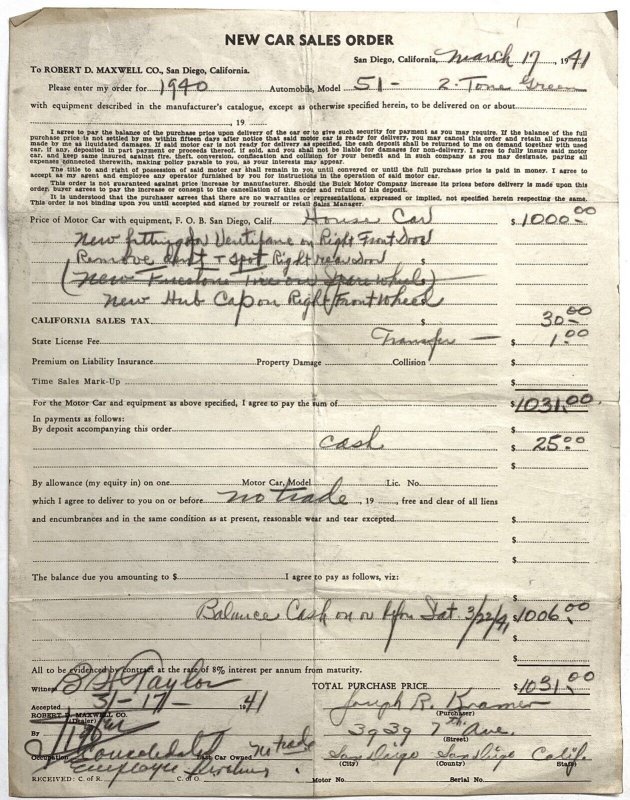 NEW CAR SALES ORDER
San Diego, California, March 17, 1941
To ROBERT D. MAXWELL CO., San Diego, California.
Please enter my order for 1940 Automobile, Model 51- 2-Tone Green
with equipment described in the manufacturer's catalogue, except as otherwise specified herein, to be delivered on or about
, 19
I agree to pay the balance of the purchase price upon delivery of the car or to give such security for payment as you may require. If the balance of the full
purchase price is not settled by me within fifteen days after notice that said motor car is ready for delivery, you may cancel this order and retain all payments
made by me as liquidated damages. If said motor car is not ready for delivery as specified, the cash deposit shall be returned to me on demand together with used
car, if any, deposited in part payment or proceeds thereof, if sold, and you shall not be liable for damages for non-delivery. I agree to fully insure said motor
car, and keep same insured against fire, theft, conversion, confiscation and collision for your benefit and in such company as you may designate, paying all
expenses connected therewith, making policy payable to you, as your interests may appear.
The title to and right of possession of said motor car shall remain in you until converted or until the full purchase price is paid in money. I agree to
accept as my agent and employee any operator furnished by you for instructions in the operation of said motor car.
This order is not guaranteed against price increase by manufacturer. Should the Buick Motor Company increase its prices before delivery is made upon this
order, buyer agrees to pay the increase or consent to the cancellation of this order and refund of his deposit.
It is understood that the purchaser agrees that there are no warranties or representations, expressed or implied, not specified herein respecting the same.
This order is not binding upon you until accepted and signed by yourself or retail Sales Manager.
Price of Motor Car with equipment, F. O. B. San Diego, Calif. House Car $ 1000.00
New fitting for Ventipane on Right Front Door
Remove dent + spot Right rear Door
(New Firestone Tire on Spare Wheel)
New Hub Cap on Right Front Wheel
CALIFORNIA SALES TAX $ 30.00
State License Fee Transfer — $ 1.00
Premium on Liability Insurance Property Damage Collision $
Time Sales Mark-Up $
For the Motor Car and equipment as above specified, I agree to pay the sum of $ 1031.00
In payments as follows:
By deposit accompanying this order $
cash $ 25.00
$
By allowance (my equity in) on one Motor Car, Model Lic. No.
which I agree to deliver to you on or before no trade, 19, free and clear of all liens
and encumbrances and in the same condition as at present, reasonable wear and tear excepted $
$
$
The balance due you amounting to $ I agree to pay as follows, viz:
Balance Cash on or before Sat. 3/22/41 $ 1006.00
$
All to be evidenced by contract at the rate of 8% interest per annum from maturity.
Witness B H Taylor TOTAL PURCHASE PRICE $ 1031.00
Accepted 3/-17- 1941 Joseph R. Kramer
ROBERT D. MAXWELL CO. (Purchaser)
(Dealer) 3939 7th Ave.
By (Street)
Occupation Consolidated Last Car Owned No trade San Diego San Diego Calif.
Employee (City) (County) State
RECEIVED: C. of R. C. of O. Motor No. Serial No.